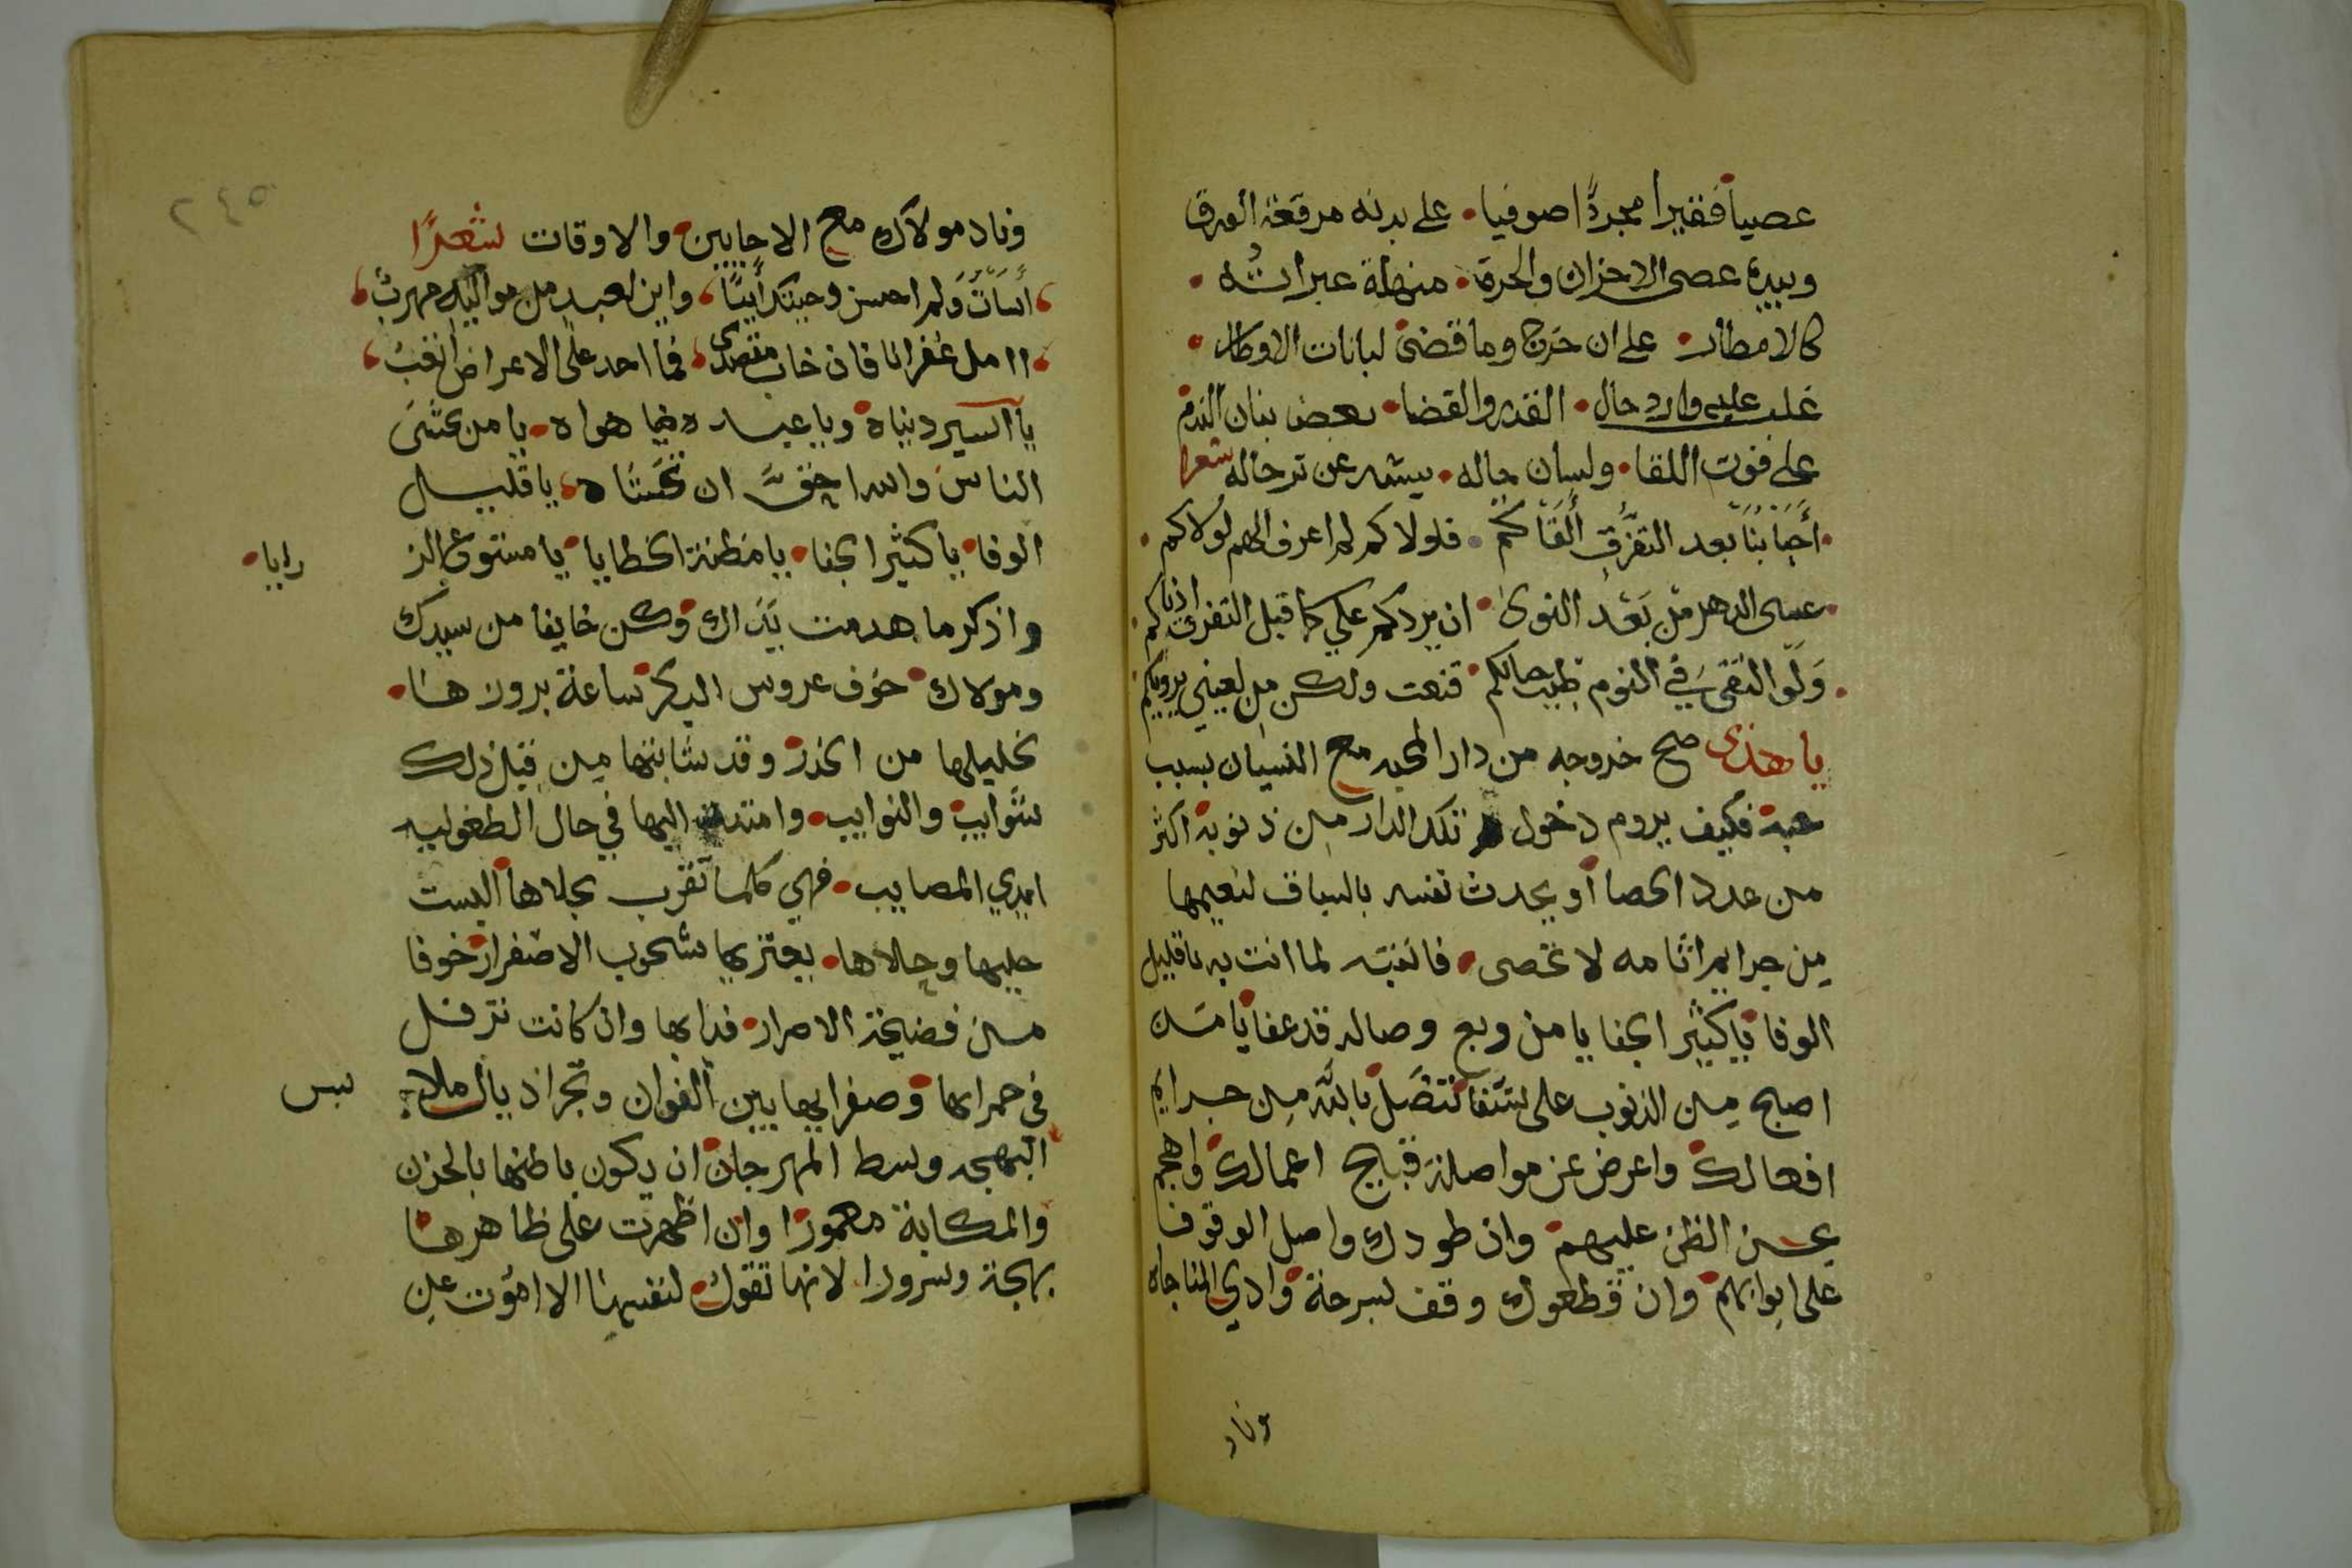 عصيا فقيرا مجردًا صوفيا • على بدنه مرقعة الفرق
وبيده عصى الاحزان والحرق • منهلة عبراتُه •
كالامطار • على ان خرج وما قضى لبانات الاوطار •
غلب عليه وارد حال • القدر والقضا • بعض بنان الندم
على فوت اللقا • ولسان حاله • ينشد عن ترحاله شعرا
• أحبابنا بعد التفرق ألقاكم • فلولاكم لم اعرف الهم لولاكم •
• عسى الدهر من بعد النوى • ان يردكم علي كما قبل التفرق
• ولو التقى في النوم طيب حالكم • قنعت ولكن من لعيني برؤياكم •
يا هذى صح خروجه من دار المحبه مع النسيان بسبب
حبة فكيف يروم دخول تلك الدار من ذنوبه اكثر
من عدد الحصا أو يحدث نفسه بالسباق لنعيمها
من جرايم اثامه لا تحصى • فانتبه لما انت به يا قليل
الوفا يا كثير الجفا يا من وبع وصاله قد عفا يا من
اصبح من الذنوب على شفا تنصل بالله من جرايم
افعالك واعرض عن مواصلة قبايح اعمالك واهجم
بحسن الظن عليهم وان طردوك واصل الوقوف
على ابوابهم وان قطعوك وقف لسرحة وادي المناجاه
وناد
٢٤٥
وناد مولاك مع الاجابين • والاوقات شعرًا
أسأت ولم احسن وجيتك أيبًا، واين لعبد من مواليه مهرب،
ا امل غفرانا فان خاب مقصدى، فما احد على الاعراض اتعب،
يا اسير دنياه ويا عبد فيما هواه • يا من يخشى
الناس والله احق ان تخشاه، يا قليل
الوفا يا كثير الجفا • يا مظنة الخطايا يا مستودع الر
زايا •
واذكر ما هدمت يداك وكن خايفا من سيدك
ومولاك • خوف عروس البكر ساعة بروزها •
تخليلها من الخدر وقد شابتها من قبل ذلك
شوايب والنوايب • وامتدت اليها في حال الطفوليه
ايدي المصايب • فهي كلما تقرب بجلاها البست
حليها وحلاها • يعتريها شحوب الاصفرار خوفا
من فضيحة الاصرار • فدابها وان كانت ترفل
في حمرايها وصفرايها بين الفوان وتجر اذيال ملا
بس
البهجه وسط المهرجان ان يكون باطنها بالحزن
والمكابة مغمورًا وان اظهرت على ظاهرها
بهجة وسرورا لانها تقول • لنفسها الا امؤت عن